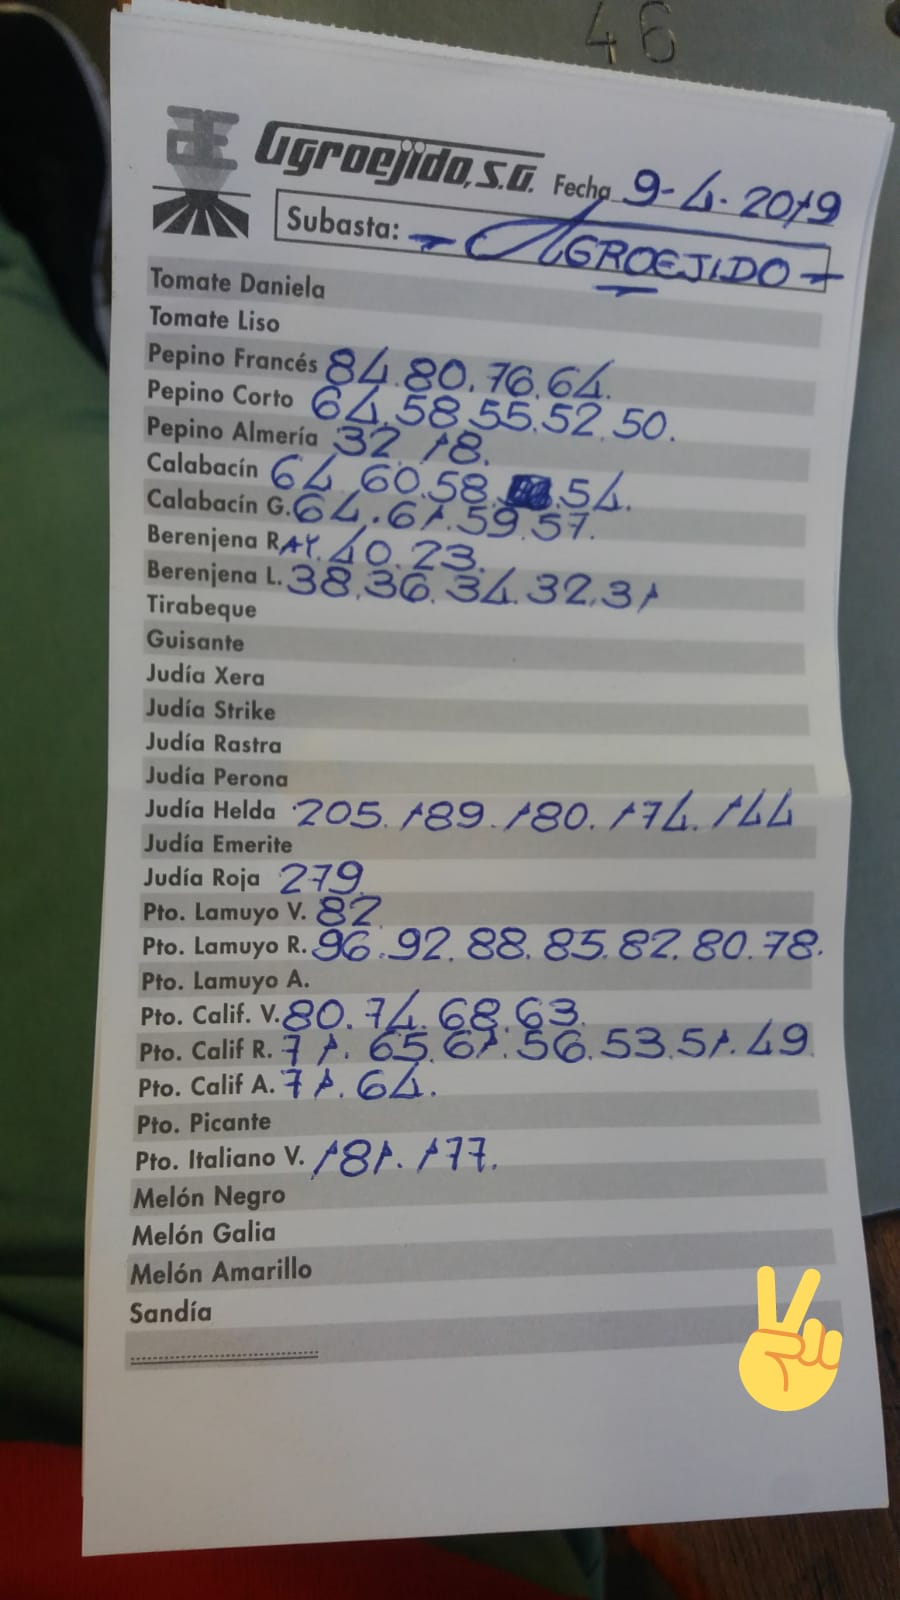 46
Agroejido, S.A. Fecha 9-4-2019
Subasta: - AGROEJIDO -
Tomate Daniela
Tomate Liso
Pepino Francés 84.80.76.64.
Pepino Corto 64.58.55.52.50.
Pepino Almería 32.18.
Calabacín 64.60.58. .54.
Calabacín G. 64.61.59.57.
Berenjena RAY. 40.23.
Berenjena L. 38.36.34.32.31
Tirabeque
Guisante
Judía Xera
Judía Strike
Judía Rastra
Judía Perona
Judía Helda 205.189.180.174.144
Judía Emerite
Judía Roja 279
Pto. Lamuyo V. 82
Pto. Lamuyo R. 96.92.88.85.82.80.78.
Pto. Lamuyo A.
Pto. Calif. V. 80.74.68.63
Pto. Calif R. 71.65.61.56.53.51.49
Pto. Calif A. 71.64.
Pto. Picante
Pto. Italiano V. 181.177.
Melón Negro
Melón Galia
Melón Amarillo
Sandía